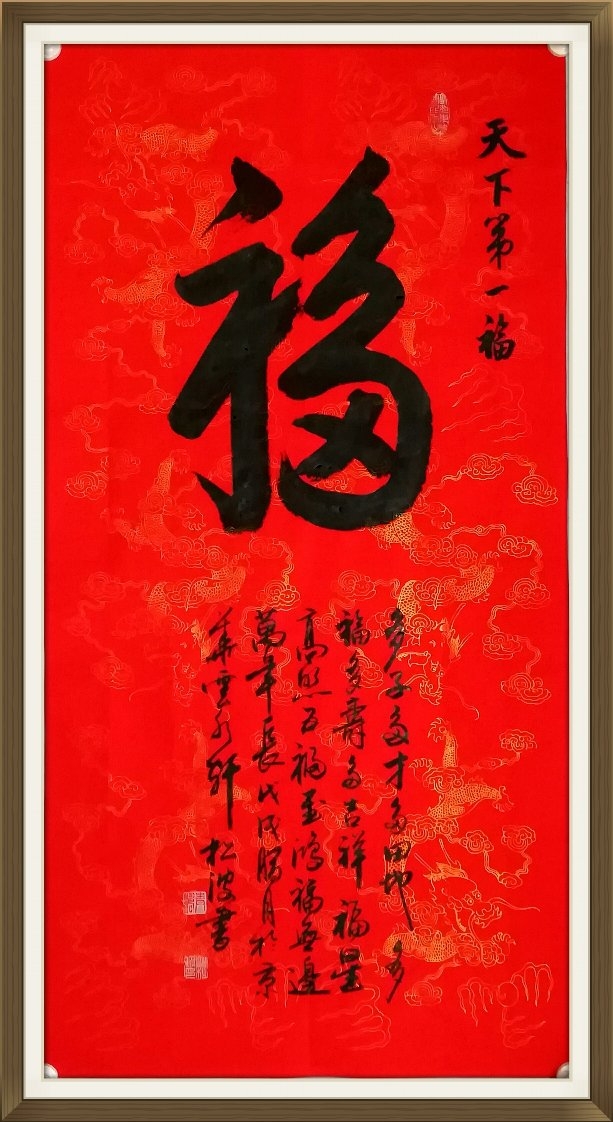 天下第一福
福
多子多才多田地多
福多寿多吉祥福星
高照百福至鸿福無邊
萬年長戊戌腊月於京
華雲水軒松波書